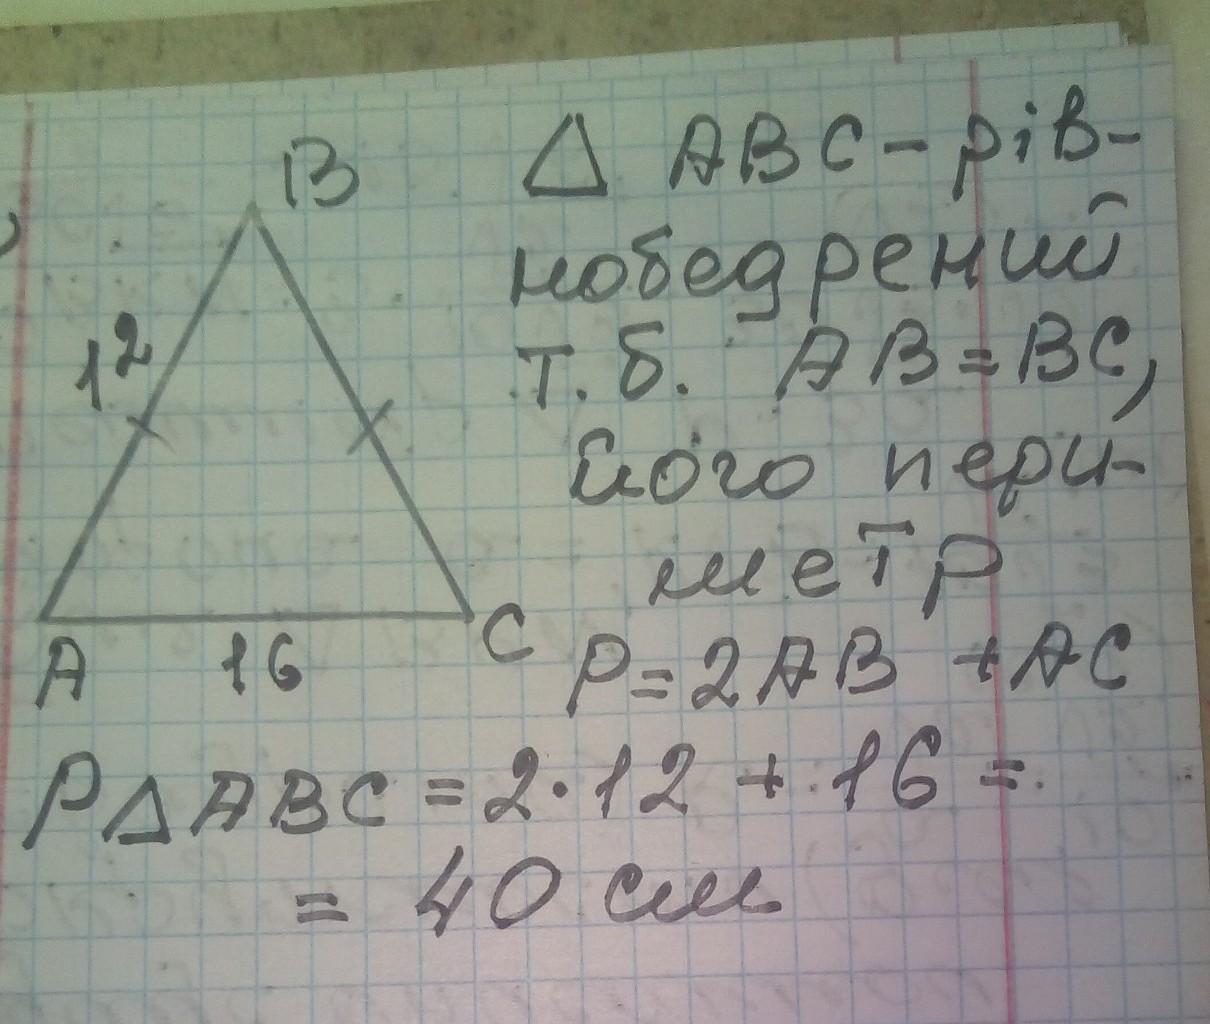 B
12
A
16
C
△ ABC - рів-
нобедрений
т.б. AB = BC,
його пери-
метр
P = 2AB + AC
P△ABC = 2·12 + 16 =
= 40 см